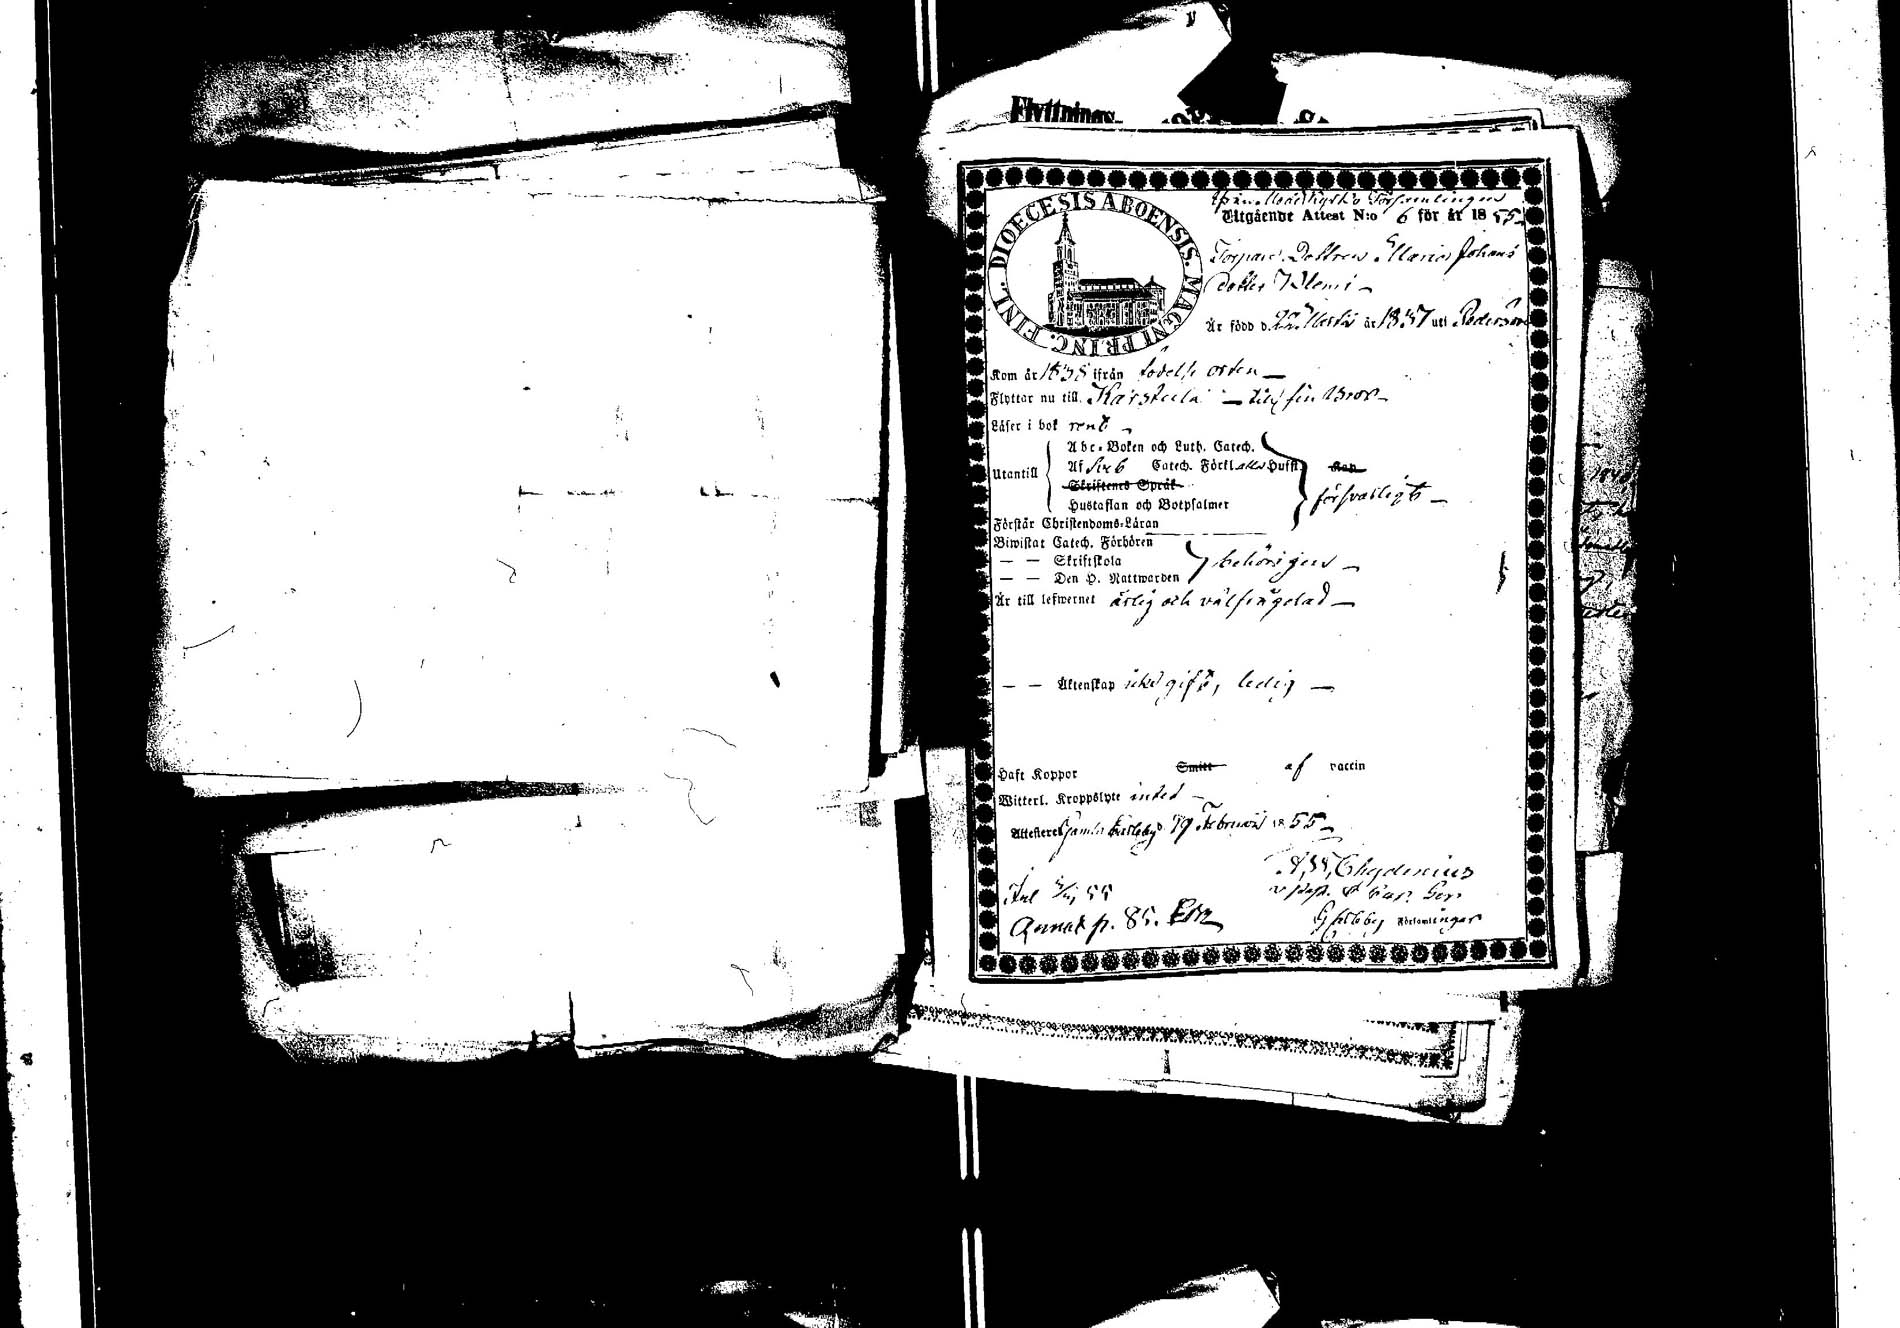 Flyttnings-
DIOECESIS ABOENSIS. MAGNI PRINC. FINL.
Församlingen
Utgående Attest N:o 6 för år 1855
Dottren Maria Johans
dotter
Är född d. 22 år 1837 uti Pedersöre
Kom år 1838 ifrån födelse orten —
Flyttar nu till Karstula — till sin
Läser i bok rent
Utantill
Abc-Boken och Luth. Catech.
Af Catech. Förkl. Hufst. Kap
Skriftenes Språk
Hustaflan och Botpsalmer
försvarligt —
Förstår Christendoms-Läran
Biwistat Catech. Förhören
— — Skriftskola
— — Den H. Nattwarden
behörigen —
Är till lefwernet ärlig och välfrägdad —
— — Äktenskap icke gift, ledig —
Haft Koppor Smitt af vaccin
Witterl. Kroppslyte intet —
Attesterar Gamla Karleby d. 19 Februari 1855
Chydenius
Inl 55
Annot p. 85.
Församlingar